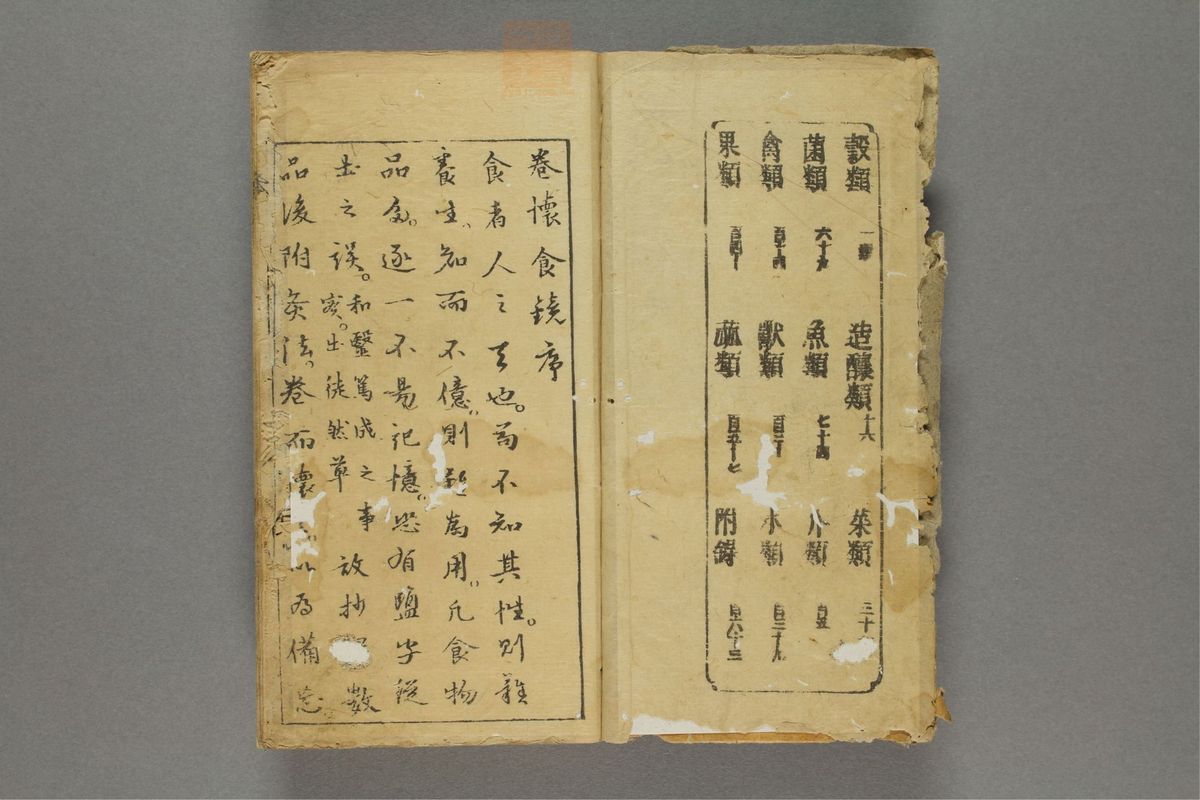 穀類 一 造釀類 十六 菜類 三十
菌類 六十九 魚類 七十四 介類 百五
禽類 獸類 百二十 水類 百三十九
果類 百四十 蓏類 百五十七 附録 百六十三
卷懷食鏡序
食者人之天也。苟不知其性。則難
養生。知而不億。則難為用。凡食物
品多。逐一不易記憶。恐有鹽字從
土之誤。和醫篤成之事
実。出徒然草
故抄 數
品後附灸法。卷而懷 以為備忘。